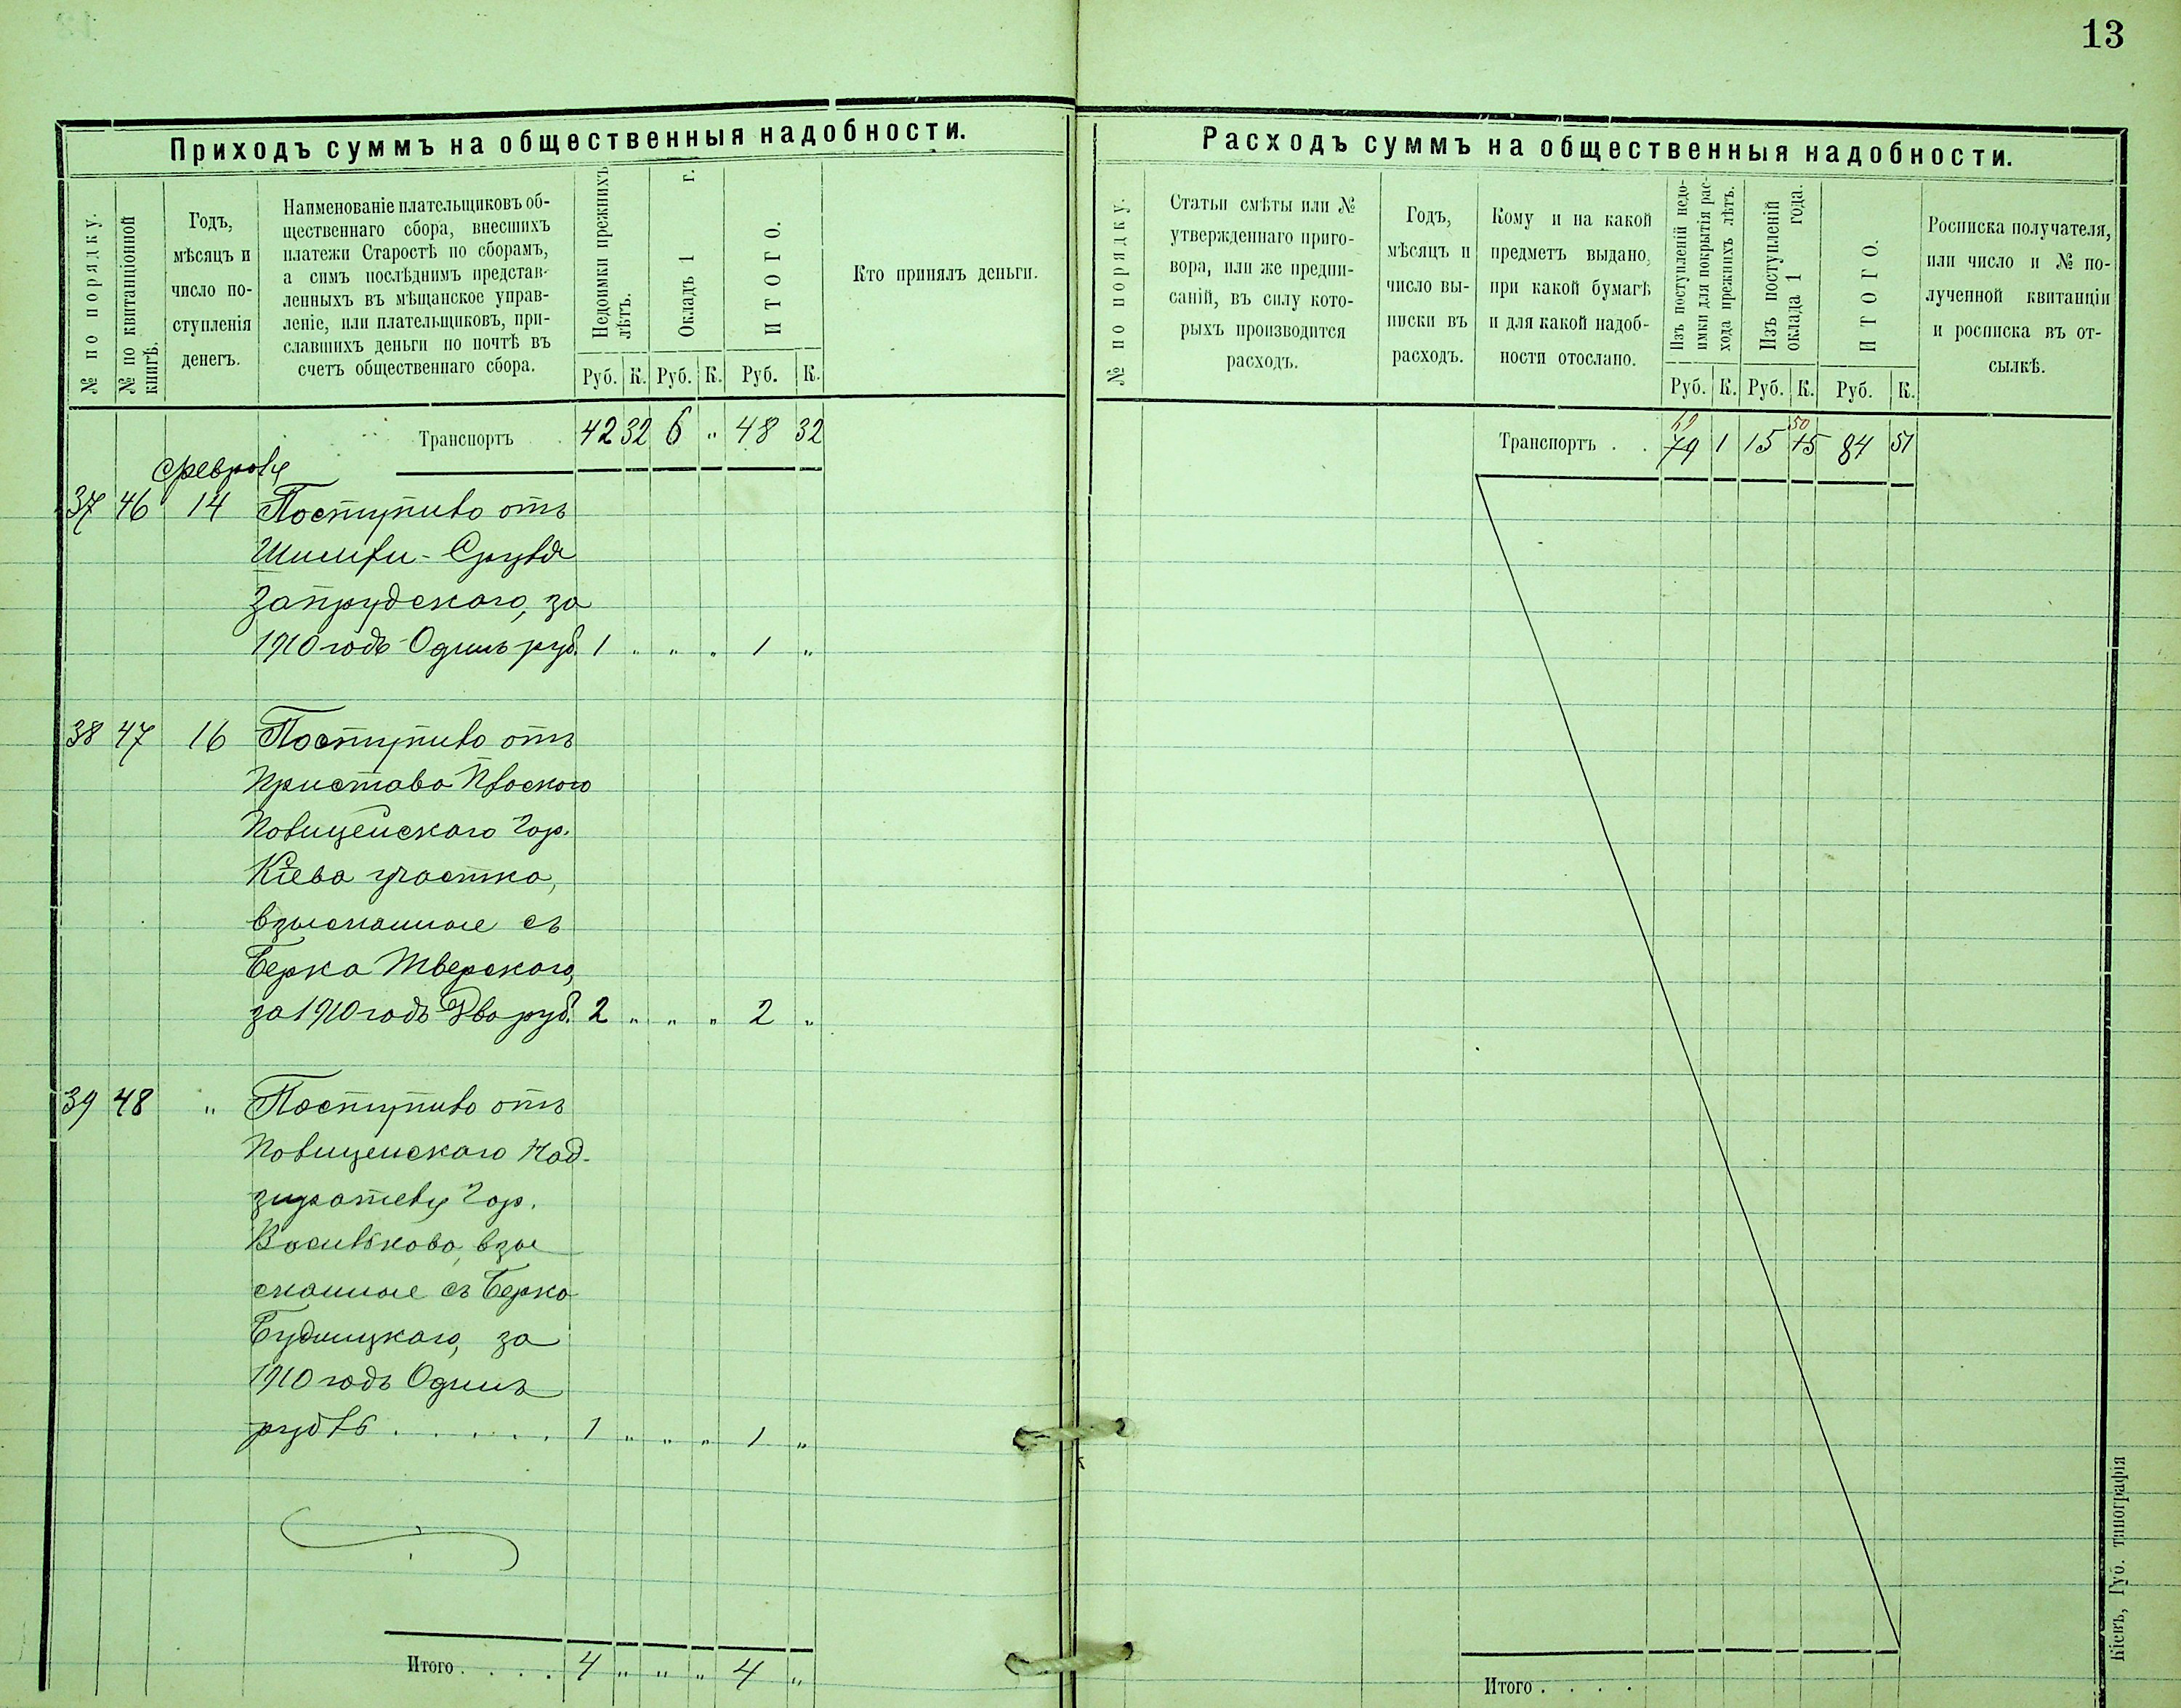 13
Приходъ суммъ на общественныя надобности.
№ по порядку.
№ по квитанціонной
книгѣ.
Годъ,
мѣсяцъ и
число по-
ступленія
денегъ.
Наименованіе плательщиковъ об-
щественнаго сбора, внесшихъ
платежи Старостѣ по сборамъ,
а симъ послѣднимъ представ-
ленныхъ въ мѣщанское управ-
леніе, или плательщиковъ, при-
славшихъ деньги по почтѣ въ
счетъ общественнаго сбора.
Недоимки прежнихъ
лѣтъ.
Окладъ 1 г.
ИТОГО.
Кто принялъ деньги.
Руб. К. Руб. К. Руб. К.
Транспортъ 42 32 6 " 48 32
Февраля
37 46 14 Поступило отъ
Запрудскаго, за
1910 годъ Одинъ руб. 1 " " " 1 "
38 47 16 Поступило отъ
Пристава Плоского
Полицейскаго гор.
Кіева участка,
взысканные съ
Берка Тверского,
за 1910 годъ Два руб. 2 " " " 2 "
39 48 " Поступило отъ
Полицейскаго Над-
зирателя гор.
Василькова, взы
сканные съ Берка
Будницкаго, за
1910 годъ Одинъ
рубль . . . . . . 1 " " " 1 "
Итого . . . . 4 " " " 4 "
Расходъ суммъ на общественныя надобности.
№ по порядку.
Статьи смѣты или №
утвержденнаго приго-
вора, или же предпи-
саній, въ силу кото-
рыхъ производится
расходъ.
Годъ,
мѣсяцъ и
число вы-
писки въ
расходъ.
Кому и на какой
предметъ выдано,
при какой бумагѣ
и для какой надоб-
ности отослано.
Изъ поступленій недо-
имки для покрытія рас-
хода прежнихъ лѣтъ.
Изъ поступленій
оклада 1 года.
ИТОГО.
Росписка получателя,
или число и № по-
лученной квитанціи
и росписка въ от-
сылкѣ.
Руб. К. Руб. К. Руб. К.
69 50
Транспортъ . . 79 1 15 15 84 51
Итого . . . .
Кіевъ, Губ. типографія